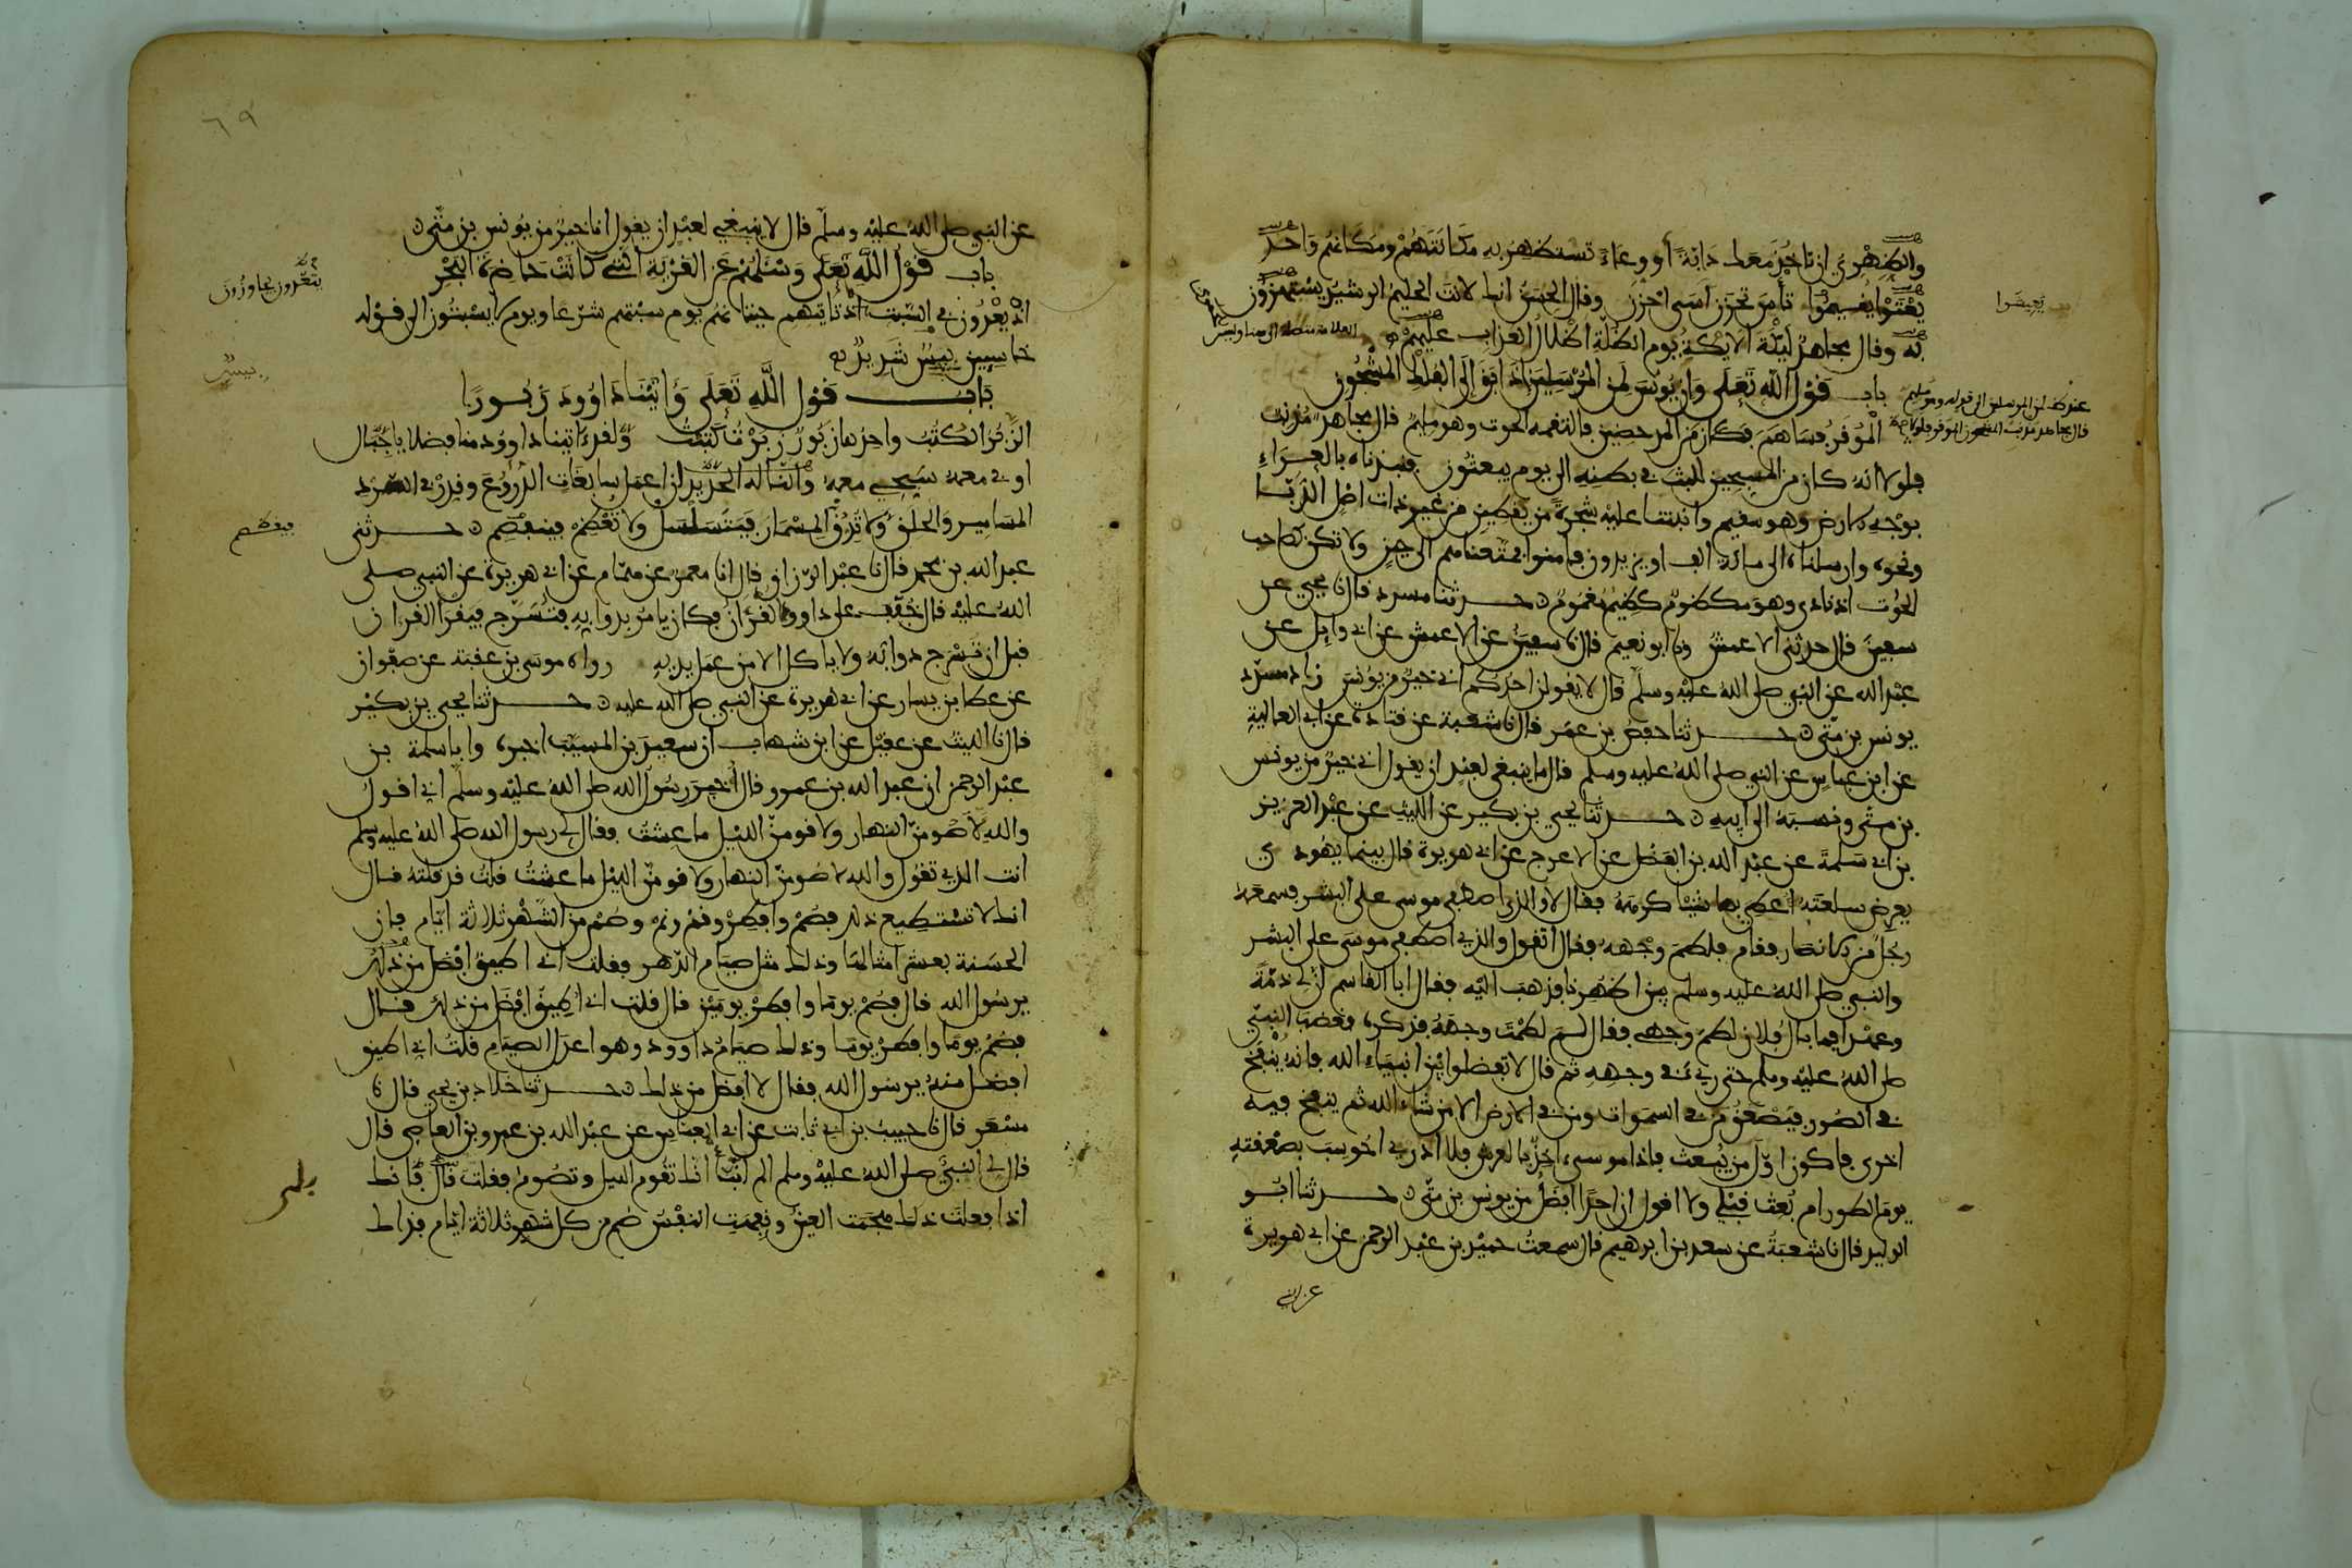 والظهري ان تاخذ معك دابة او وعاء تستظهر به مكانتهم ومكانهم واحد
يغنوا يعيشوا تأس تحزن اسى احزن وقال الحسن انك لانت الحليم الرشيد يستهزون
به وقال مجاهد ليكة الايكة يوم الظلة اظلال العذاب عليهم
يعيشوا
باب قول الله تعلى وان يونس لمن المرسلين اذ ابق الى الفلك المشحون
الموقر فساهم فكان من المدحضين فالتقمه الحوت وهو مليم قال مجاهد مذنب
فلولا انه كان من المسبحين للبث في بطنه الى يوم يبعثون فنبذناه بالعراء
بوجه الارض وهو سقيم وانبتنا عليه شجرة من يقطين من غير ذات اصل الدبا
ونحوه وارسلناه الى مائة الف او يزيدون فامنوا فمتعناهم الى حين ولا تكن كصاحب
الحوت اذ نادى وهو مكظوم كظيم مغموم حدثنا مسدد قال نا يحيى عن
سفين قال حدثني الاعمش ونا ابو نعيم قال نا سفين عن الاعمش عن ابي وايل عن
عبد الله عن النبي صلى الله عليه وسلم قال لا يقولن احدكم اني خير من يونس زاد مسدد
يونس بن متى حدثنا حفص بن عمر قال نا شعبة عن قتادة عن ابي العالية
عن ابن عباس عن النبي صلى الله عليه وسلم قال ما ينبغي لعبد ان يقول اني خير من يونس
بن متى ونسبه الى ابيه حدثنا يحيى بن بكير عن الليث عن عبد العزيز
بن ابي سلمة عن عبد الله بن الفضل عن الاعرج عن ابي هريرة قال بينما يهودي
يعرض سلعته اعطي بها شيئا كرهه فقال لا والذي اصطفى موسى على البشر فسمعه
رجل من الانصار فقام فلطم وجهه فقال اتقول والذي اصطفى موسى على البشر
والنبي صلى الله عليه وسلم بين اظهرنا فذهب اليه فقال ابا القاسم ان لي ذمة
وعهدا فما بال فلان لطم وجهي فقال لم لطمت وجهه فذكره فغضب النبي
صلى الله عليه وسلم حتى ريء في وجهه ثم قال لا تفضلوا بين انبياء الله فانه ينفخ
في الصور فيصعق من في السموات ومن في الارض الا من شاء الله ثم ينفخ فيه
اخرى فاكون اول من يبعث فاذا موسى اخذ بالعرش فلا ادري احوسب بصعقته
يوم الطور ام بعث قبلي ولا اقول ان احدا افضل من يونس بن متى حدثنا ابو
الوليد قال نا شعبة عن سعد بن ابرهيم قال سمعت حميد بن عبد الرحمن عن ابي هريرة
٦٩
عن النبي صلى الله عليه وسلم قال لا ينبغي لعبد ان يقول انا خير من يونس بن متى
باب قول الله تعلى وسئلهم عن القرية التي كانت حاضرة البحر
اذ يعدون في السبت اذ تاتيهم حيتانهم يوم سبتهم شرعا ويوم لا يسبتون الى قوله
خاسين بيس شديد
يتعدون يجاوزون
باب قول الله تعلى واتينا داوود زبورا
الزبر الكتب واحدها زبور زبرت كتبت ولقد اتينا داوود منا فضلا يا جبال
اوبي معه سبحي معه والنا له الحديد ان اعمل سابغات الدروع وقدر في السرد
المسامير والحلق ولا تدق المسمار فيتسلسل ولا تعظم فينفصم حدثني
عبد الله بن محمد قال نا عبد الرزاق قال انا معمر عن همام عن ابي هريرة عن النبي صلى
الله عليه قال خفف على داوود القرآن فكان يامر بدوابه فتسرج فيقرا القران
قبل ان تسرج دوابه ولا ياكل الا من عمل يديه رواه موسى بن عقبة عن صفوان
عن عطا بن يسار عن ابي هريرة عن النبي صلى الله عليه حدثنا يحيى بن بكير
قال نا الليث عن عقيل عن ابن شهاب ان سعيد بن المسيب اخبره وابا سلمة بن
عبد الرحمن ان عبد الله بن عمرو قال اخبر رسول الله صلى الله عليه وسلم اني اقول
والله لاصومن النهار ولاقومن الليل ما عشت فقال لي رسول الله صلى الله عليه وسلم
انت الذي تقول والله لاصومن النهار ولاقومن الليل ما عشت قلت قد قلته قال
انك لا تستطيع ذلك فصم وافطر وقم ونم وصم من الشهر ثلاثة ايام فان
الحسنة بعشر امثالها وذلك مثل صيام الدهر فقلت اني اطيق افضل من ذلك
يرسول الله قال فصم يوما وافطر يومين قال قلت اني اطيق افضل من ذلك قال
فصم يوما وافطر يوما وذلك صيام داوود وهو اعدل الصيام قلت اني اطيق
افضل منه يرسول الله فقال لا افضل من ذلك حدثنا خلاد بن يحيى قال نا
مسعر قال نا حبيب بن ابي ثابت عن ابي العباس عن عبد الله بن عمرو بن العاصي قال
قال لي النبي صلى الله عليه وسلم الم انبأ انك تقوم الليل وتصوم فقلت قال فانك
اذا فعلت ذلك هجمت العين ونفهت النفس صم من كل شهر ثلاثة ايام فذلك